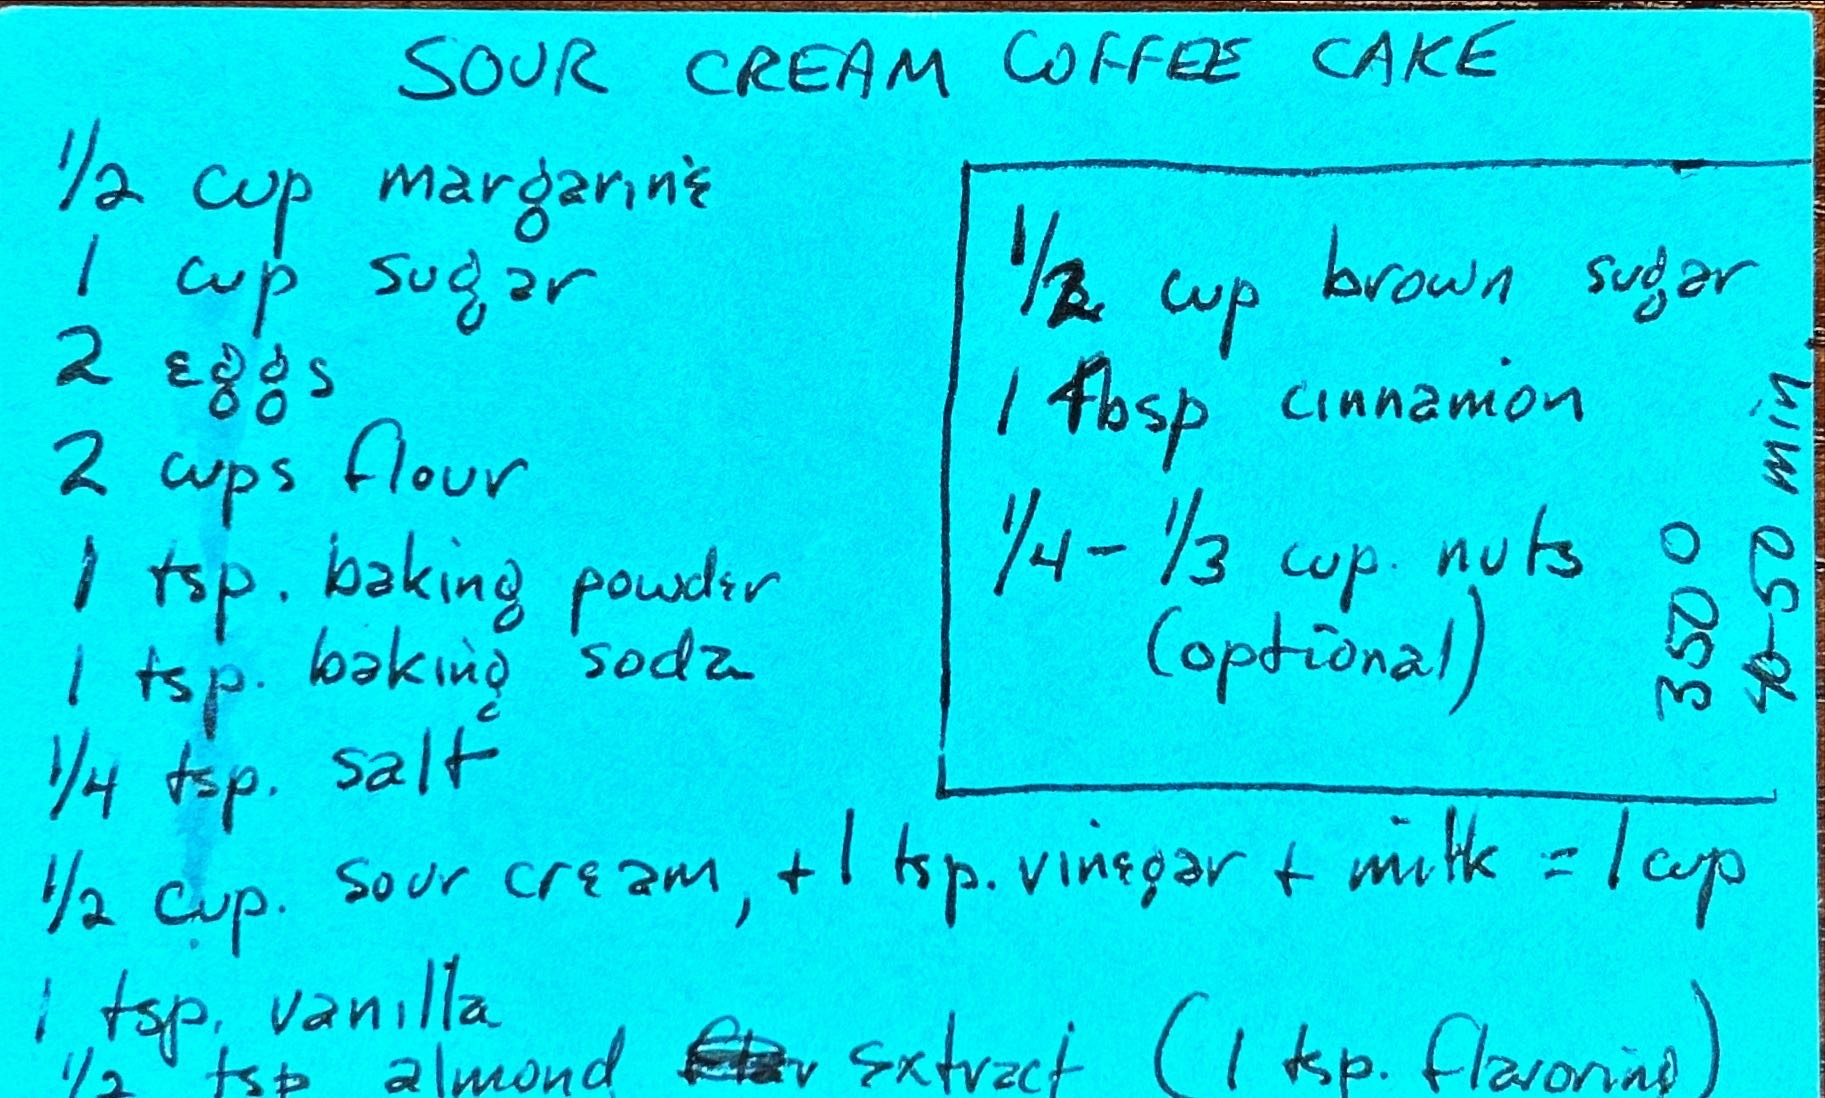 SOUR CREAM COFFEE CAKE
1/2 cup margarine
1 cup sugar
2 eggs
2 cups flour
1 tsp. baking powder
1 tsp. baking soda
1/4 tsp. salt
1/2 cup. sour cream, + 1 tsp. vinegar + milk = 1 cup
1 tsp. vanilla
1/2 tsp almond extract (1 tsp. flavoring)
1/2 cup brown sugar
1 tbsp cinnamon
1/4 - 1/3 cup. nuts
(optional)
350°
40-50 min